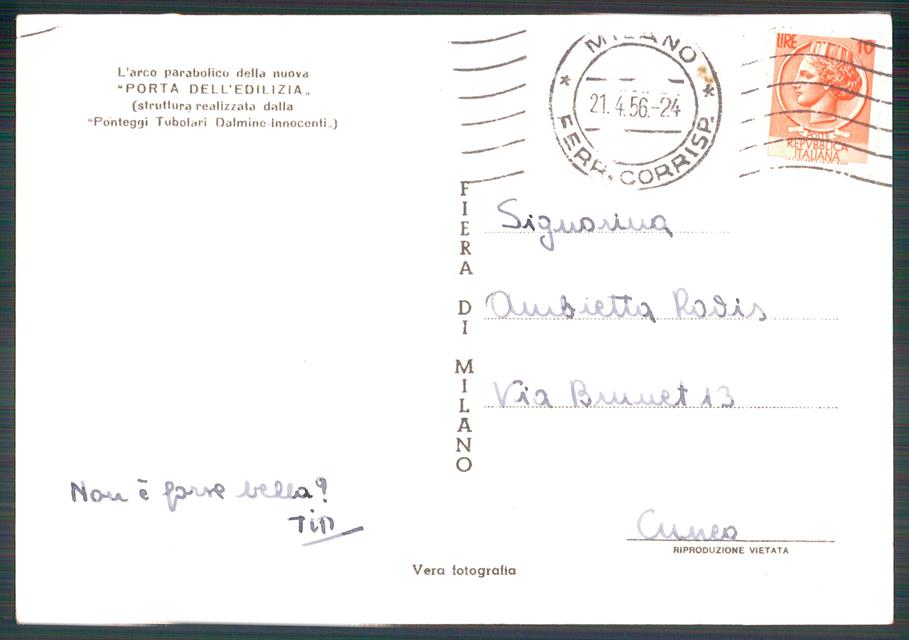 L'arco parabolico della nuova
"PORTA DELL'EDILIZIA„
(struttura realizzata dalla
"Ponteggi Tubolari Dalmine-Innocenti„)
MILANO
21.4.56.-24
FERR. CORRISP.
LIRE 10
POSTE
REPVBBLICA
ITALIANA
FIERA DI MILANO
Signorina
Ambietta Rodis
Via Brunet 13
Cuneo
RIPRODUZIONE VIETATA
Non è forse bella?
Tin
Vera fotografia